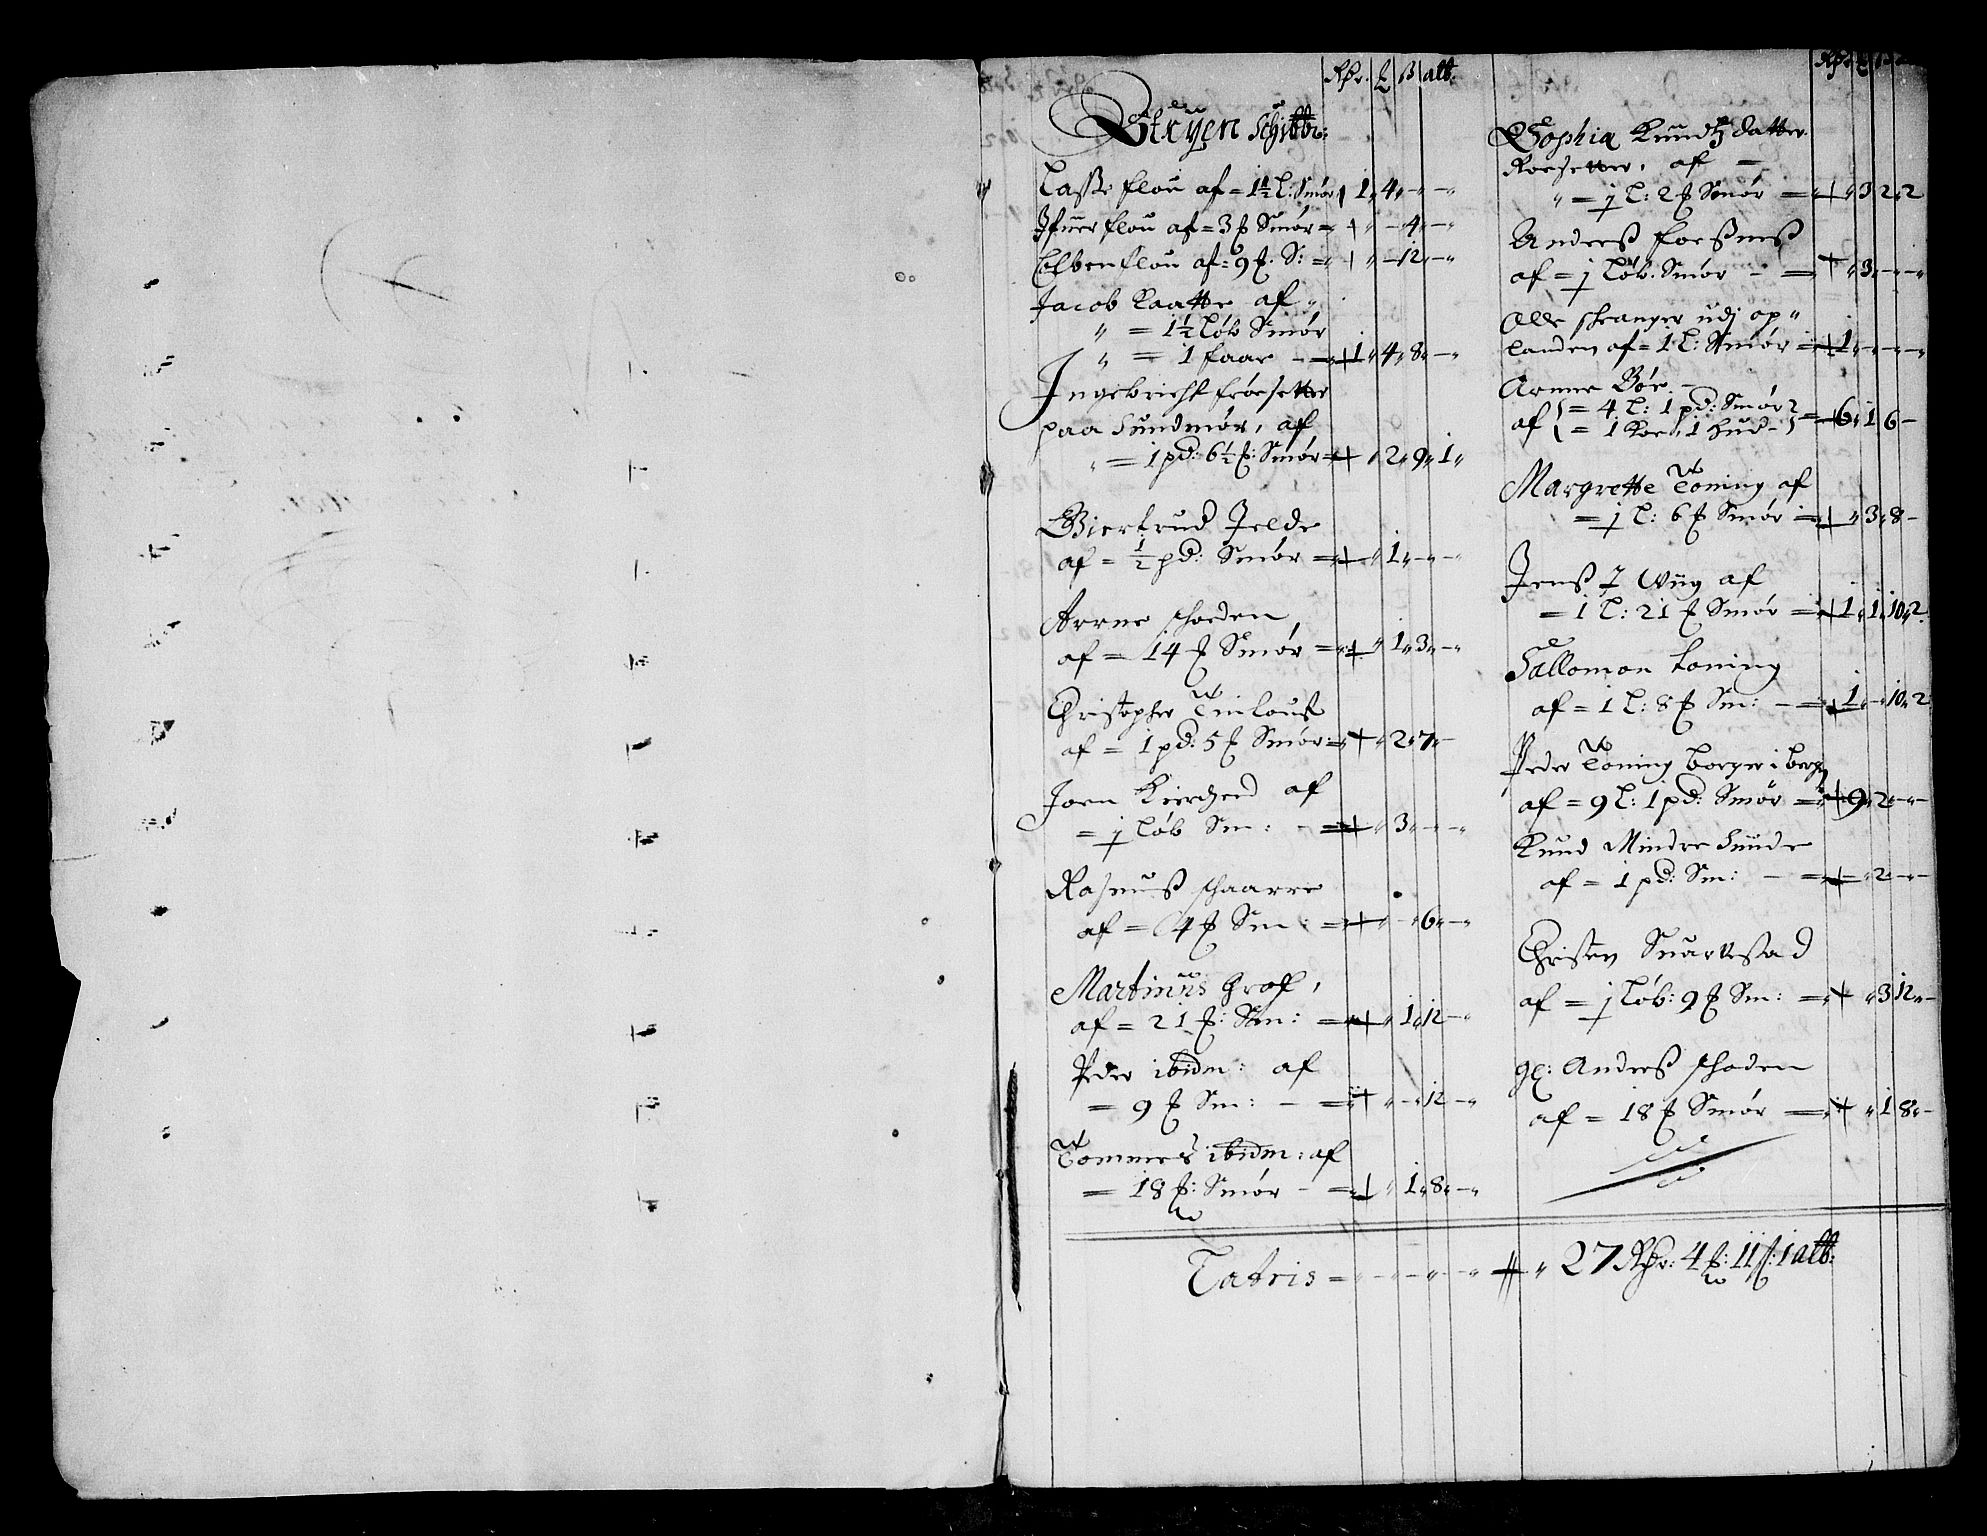 Rdr. £ ß alb:
Stryen Schibbr:
Lasse flou af = 1½ L: Smør 1 „ 4 „ - „ - „
Ifuer flou af = 3 £ Smør = „ - 4 „ - „
Colben flou af = 9 £. S: = „ - 12 „ - „
Jacob Raatte af „
„ = 1½ Løb Smør
„ = 1 faar - 1 „ 4 „ 8 „ - „
Ingebricht frøesetter
paa Sundmør, af
„ = 1 pd: 6½ £: Smør = „ 2 „ 9 „ 1 „
Giertrud Jelde
af = ½ pd: Smør = „ 1 „ - „ - „
Arne schoeden
af = 14 £ Smør = „ 1 „ 3 „ - „
Christopher Tinlous
af = 1 pd: 5 £ Smør = „ 2 „ 7 „ -
Joen Kierched af
= j Løb Sm: - = „ 3 „ - „ - „
Rasmus schaarre
af = 4 £ Sm: = „ - „ 6 „ - „
Martinus Graf,
af = 21 £: Sm: = „ 1 „ 12 - „
Peder ibidm: af
= 9 £ Sm: - = „ - „ 12 - „
Tommes ibidm: af
= 18 £: Smør - = „ 1 „ 8 „ - „
Rdr £ ß
Sophia Knudtz datter
Roesetter, af -
„ = j L: 2 £ Smør = „ 3 2 „ 2
Anders foesnes
af = j Løb. Smør - = „ 3 „ - „ - „
Olle schranger udj op „
landen af = 1 L: Smør = 1 „ - „ - „ - „
Arnne Bøe -
af { = 4 L: 1 pd: Smør
= 1 Koe, 1 hud - } = 6 „ 1 6 -
Margrette Toning af
= j L: 6 £ Smør = „ 3 „ 8 -
Jens I Wiig af
= 1 L: 21 £ Smør = 1 „ 1 „ 10 „ 2
Sallomon Toning
af = 1 L: 8 £ Sm: - = 1 „ - „ 10 „ 2
Peder Toning borger i berg
af = 9 L: 1 pd: Smør = 9 „ 2 „ - „ -
Knud Mindre Sunde
af = 1 pd: Sm: - = „ 2 „ - „ -
Christen Suarstad
af = j Løb: 9 £ Sm: = „ 3 12 „ -
gl: Anders schoden
af = 18 £ Smør = „ 1 8 „ -
Latris = „ - „ - „ - „ 27 Rdr: 4 £: 11 ß: 1 alb: